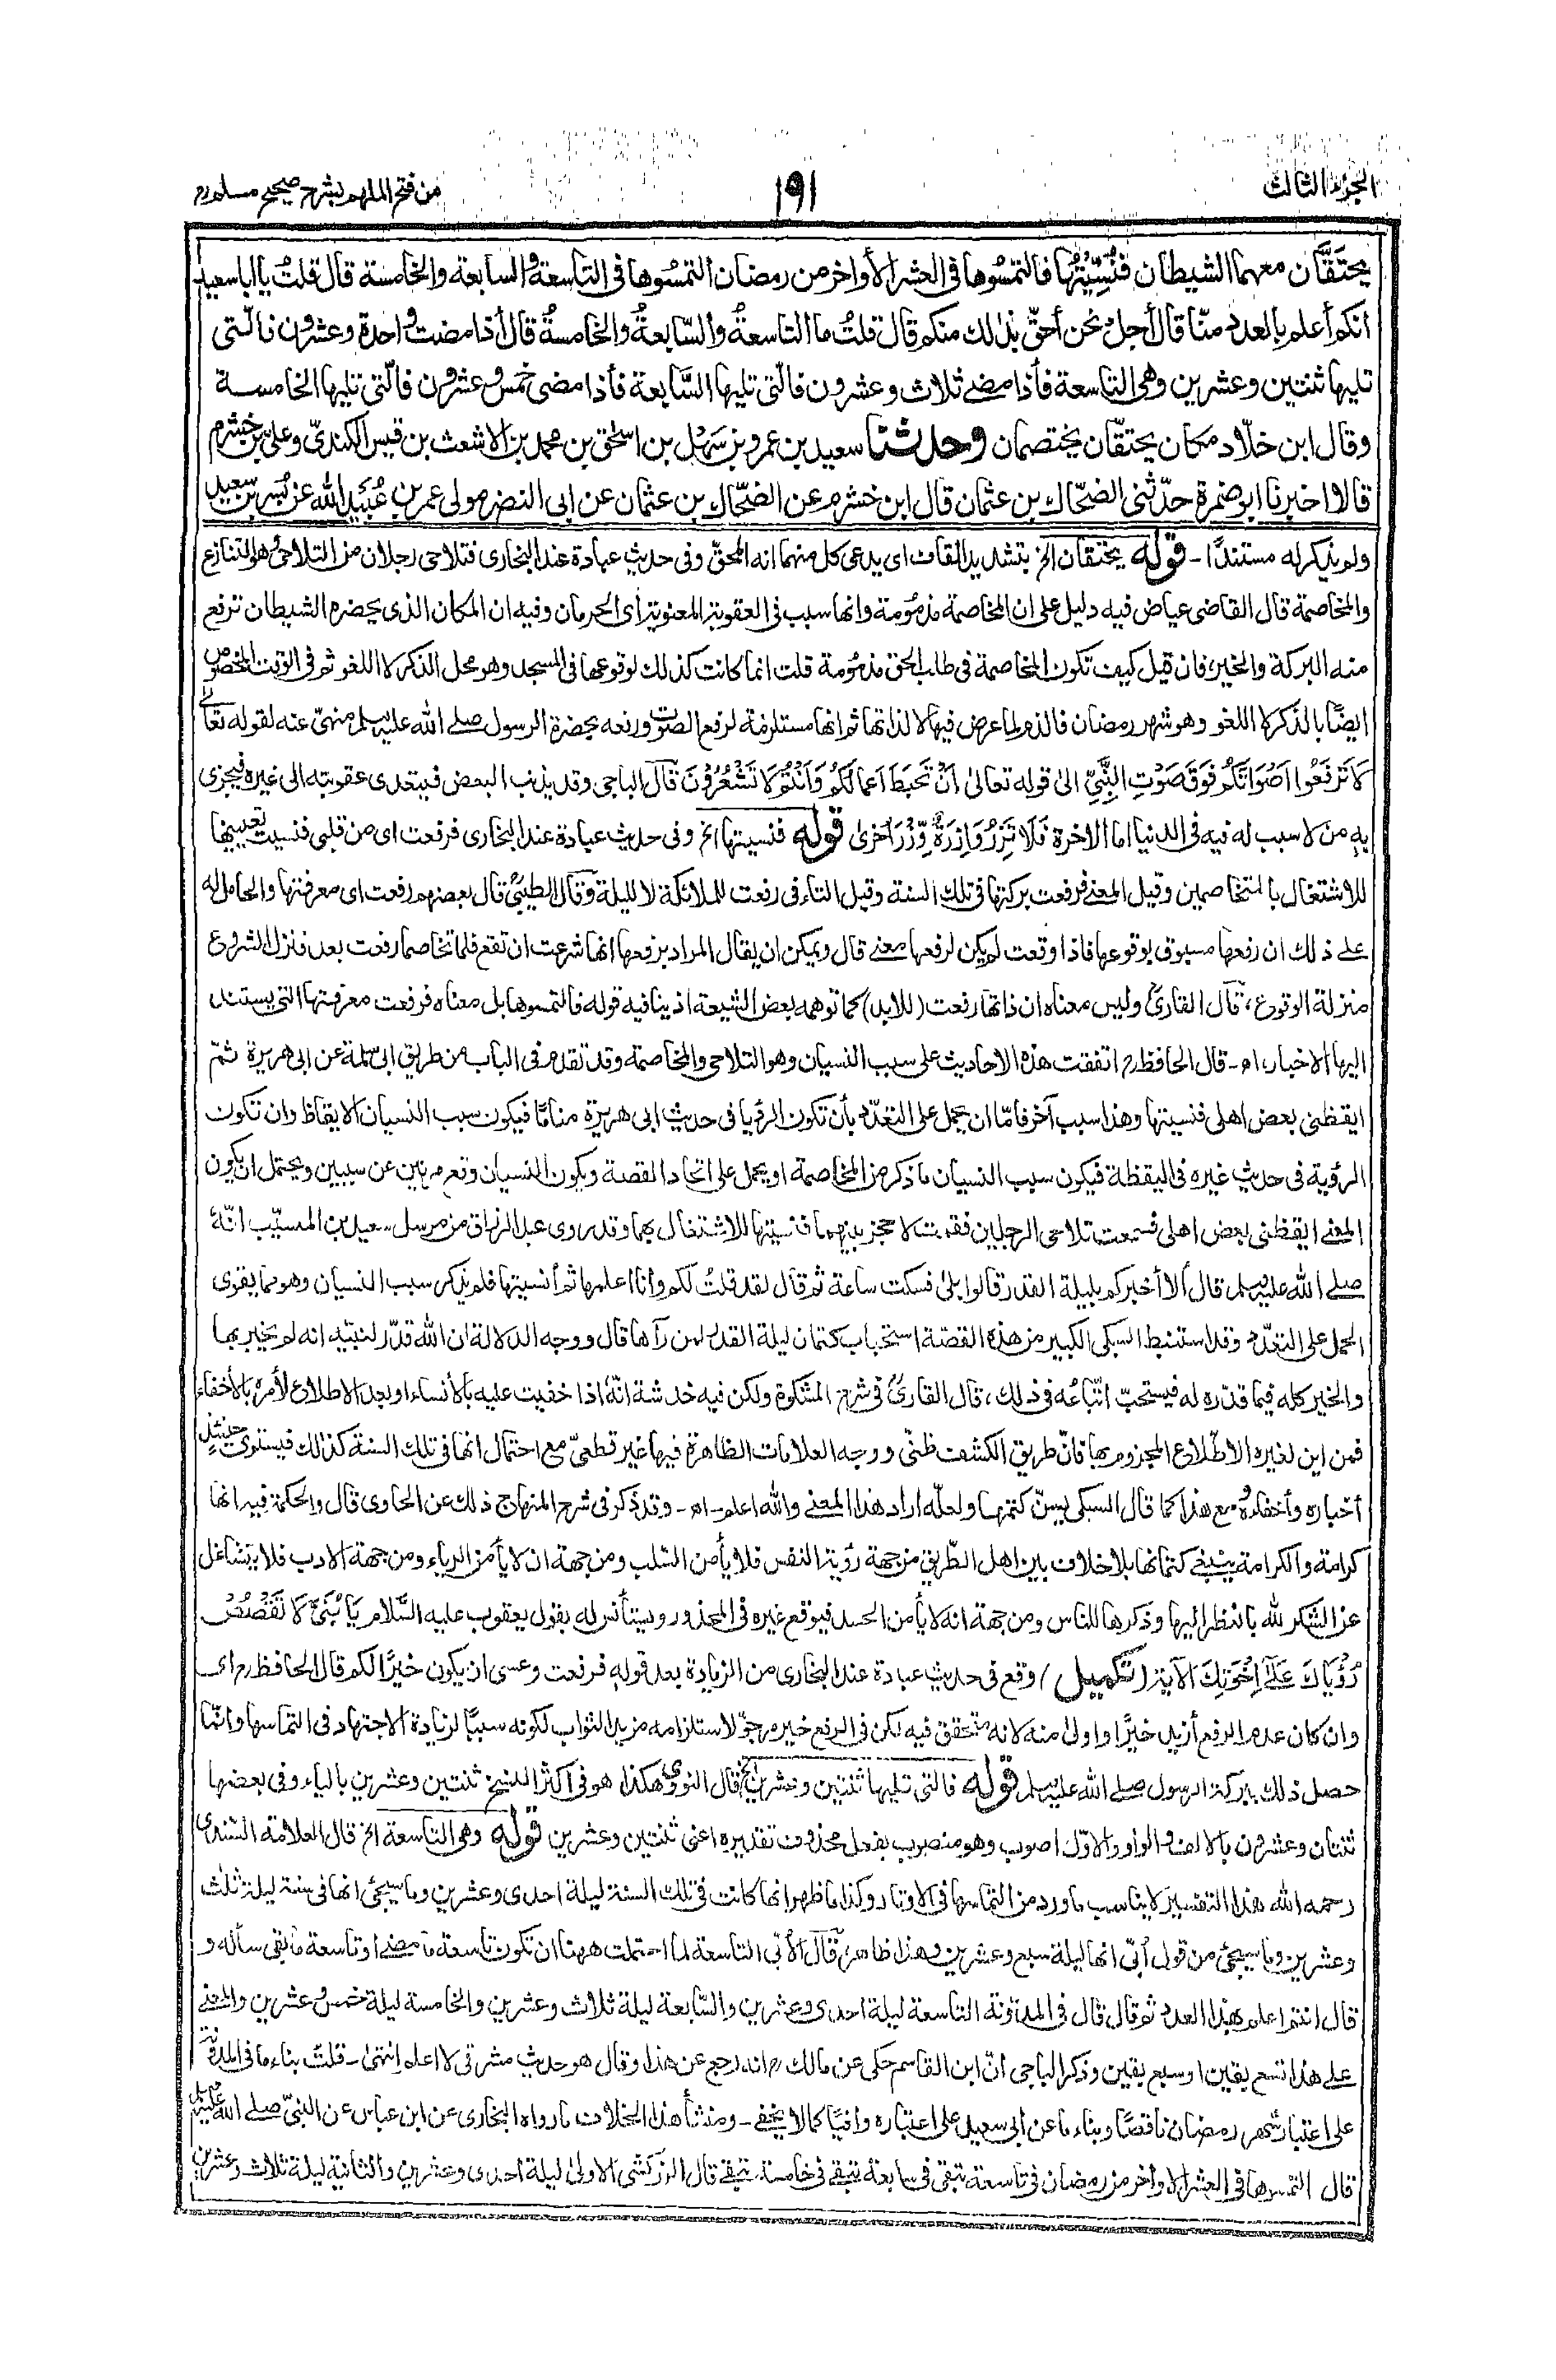 الجزء الثالث
١٩١
من فتح الملهم بشرح صحيح مسلم
يحتقّان معهما الشيطان فنُسِّيْتُها فالتمسُوها فى العشر الأواخر من رمضان التمسُوها فى التاسعة والسابعة والخامسة قال قلتُ يا أبا سعيد
انكم أعلم بالعدد منّا قال أجل نحن أحقّ بذلك منكم قال قلتُ ما التاسعةُ والسّابعةُ والخامسةُ قال أذا مضت واحدة وعشرون فالّتى
تليها ثنتين وعشرين وهى التاسعة فأذا مضے ثلاث وعشرون فالّتى تليها السَّابعة فأذا مضى خمس وعشرون فالّتى تليها الخامسة
وقال ابن خلّاد مكان يحتقّان يختصمان وحدثنا سعيد بن عمرو بن سهل بن اسحٰق بن محمد بن الاشعث بن قيس الكندىّ وعلى بن خشرم
قالا اخبرنا ابو ضمرة حدّثنى الضحّاك بن عثمان قال ابن خشرم عن الضحّاك بن عثمان عن ابى النضر مولى عمر بن عُبَيد الله عن بُسر بن سعيد
ولو يذكر له مستندًا - قوله يختقان الخ بتشديد القاف اى يدعى كل منهما انه المحقّ وفى حديث عبادة عند البخارى فتلاحى رجلان من التلاحى وهو التنازع
والمخاصمة قال القاضى عياض فيه دليل على ان المخاصمة مذمومة وانها سبب فى العقوبة المعنوية أى الحرمان وفيه ان المكان الذى يحضره الشيطان ترفع
منه البركة والخير، فان قيل كيف تكون المخاصمة فى طلب الحق مذمومة قلت انما كانت كذلك لوقوعها فى المسجد وهو محل الذكر لا اللغو ثم فى الوقت المخصوص
ايضًا بالذكر لا اللغو وهو شهر رمضان فالذم لما عرض فيها لا لذاتها ثم انها مستلزمة لرفع الصوت ورفعه بحضرة الرسول صلے الله عليه وسلم منهىّ عنه لقوله تعالٰى
لَا تَرْفَعُوْا اَصْوَاتَكُمْ فَوْقَ صَوْتِ النَّبِىِّ الىٰ قوله تعالىٰ اَنْ تَحْبَطَ اَعْمَالُكُمْ وَاَنْتُمْ لَا تَشْعُرُوْنَ قال الباجى وقد يذنب البعض فيتعدى عقوبته الى غيره فيجزى
به من لا سبب له فيه فى الدنيا اما الاخرة فَلَا تَزِرُ وَازِرَةٌ وِّزْرَ اُخْرٰى قوله فنسيتها الخ وفى حديث عبادة عند البخارى فرفعت اى من قلبى فنسيت تعيينها
للاشتغال بالمتخاصمين وقيل المعنے فرفعت بركتها فى تلك السنة وقيل التاء فى رفعت للملائكة لا لليلة وقال الطيبىؒ قال بعضهم رفعت اى معرفتها والحامل له
علے ذلك ان رفعها مسبوق بوقوعها فاذا وقعت لم يكن لرفعها معنے قال ويمكن ان يقال المراد برفعها انها شرعت ان تقع فلما تخاصما رفعت بعد فنزل الشروع
منزلة الوقوع، قال القارىؒ وليس معناه ان ذاتها رفعت (للابد) كما توهمه بعض الشيعة اذ ينافيه قوله فالتمسوها بل معناه فرفعت معرفتها التى يستند
اليها الاخبار، اه - قال الحافظ رح اتفقت هذه الاحاديث على سبب النسيان وهو التلاحى والمخاصمة وقد تقدم فى الباب من طريق ابى سلمة عن ابى هريرة ثمّ
ايقظنى بعض اهلى فنسيتها وهذا سبب آخر فامّا ان يحمل على التعدّد بأن تكون الرؤيا فى حديث ابى هريرة منامًا فيكون سبب النسيان الايقاظ وان تكون
الرؤية فى حديث غيره فى اليقظة فيكون سبب النسيان ما ذكر من المخاصمة او يحمل على اتحاد القصة ويكون النسيان وقع مرتين عن سببين ويحتمل ان يكون
المعنے ايقظنى بعض اهلى فسمعت تلاحى الرجلين فقمت لاحجز بينهما فنسيتها للاشتغال بهما وقد روى عبد الرزاق من مرسل سعيد بن المسيّب انّهٗ
صلے الله عليه وسلم قال ألا أخبركم بليلة القدر قالوا بلىٰ فسكت ساعة ثم قال لقد قلتُ لكم وأنا اعلمها ثم أنسيتها فلم يذكر سبب النسيان وهو مما يقوى
الحمل على التعدّد وقد استنبط السبكى الكبير من هذه القصّة استحباب كتمان ليلة القدر لمن رآها قال ووجه الدلالة ان الله قدّر لنبيّه انه لم يخبر بها
والخير كله فيما قدّره له فيستحبّ اتّباعُه فى ذلك، قال القارىؒ فى شرح المشكوة ولكن فيه خدشة انّهٗ اذا خفيت عليه بالأنساء او بعد الاطلاع لأمره بالأخفاء
فمن اين لغيره الاطّلاع المجزوم بها فانّ طريق الكشف ظنّى ووجه العلامات الظاهرة فيها غير قطعىّ مع احتمال انها فى تلك السنة كذلك فيستوى حينئذٍ
أخباره وأخفاؤهٗ مع هذا كما قال السبكى يسنّ كتمها ولعلّه اراد هذا المعنے والله اعلم - اه - وقد ذكر فى شرح المنهاج ذلك عن الحاوى قال والحكمة فيه انها
كرامة والكرامة ينبغے كتمانها بلا خلاف بين اهل الطّريق من جهة رؤية النفس فلا يأمن السّلب ومن جهة ان لا يأمن الرياء ومن جهة الادب فلا يتشاغل
عن الشكر لله بالنظر اليها وذكرها للناس ومن جهة انه لا يأمن الحسد فيوقع غيره فى المحذور ويستأنس له بقول يعقوب عليه السَّلام يَا بُنَىَّ لَا تَقْصُصْ
رُؤْيَاكَ عَلٰٓے اِخْوَتِكَ الآية (تكميل) وقع فى حديث عبادة عند البخارى من الزيادة بعد قوله فرفعت وعسى ان يكون خيرًا لكم قال الحافظ رح اى
وان كان عدم الرفع أزيد خيرًا واولىٰ منه لانه متحقق فيه لكن فى الرفع خير مرجوّ لاستلزامه مزيد الثواب لكونه سببًا لزيادة الاجتهاد فى التماسها وانّما
حصل ذلك ببركة الرسول صلے الله عليه وسلم قوله فالتى تليها ثنتين وعشرين الخ قال النووىؒ هكذا هو فى اكثر النسخ ثنتين وعشرين بالياء وفى بعضها
ثنتان وعشرون بالالف والواو والاوّل اصوب وهو منصوب بفعل محذوف تقديره اعنى ثنتين وعشرين قوله وهى التاسعة الخ قال العلامة السندى
رحمه الله هذا التفسير لا يناسب ما ورد من التماسها فى الاوتار وكذا ما ظهر انها كانت فى تلك السنة ليلة احدى وعشرين وما سيجئ انها فى سنة ليلة ثلٰث
وعشرين وما سيجئ من قول أبىّ انها ليلة سبع وعشرين وهذا ظاهر، قال الأبّى التاسعة لما احتملت ههنا ان تكون تاسعة ما مضے او تاسعة ما بقى سأله و
قال انتم اعلم بهذا العدد ثم قال قال فى المدوّنة التاسعة ليلة احدى وعشرين والسّابعة ليلة ثلاث وعشرين والخامسة ليلة خمس وعشرين والمعنے
علے هذا تسع بقين او سبع بقين وذكر الباجى انّ ابن القاسم حكى عن مالك رح انه رجع عن هذا وقال هو حديث مشرقى لا اعلمه انتهى - قلت بناء ما فى المدونة
على اعتبار شهر رمضان ناقصًا وبناء ما عن ابى سعيد على اعتباره وافيًا كما لا يخفے - ومنشأ هذا الخلاف ما رواه البخارى عن ابن عباس عن النبىّ صلے الله عليه وسلم
قال التمسوها فى العشر الاواخر من رمضان فى تاسعة تبقى فى سابعة تبقے فى خامسة تبقے قال الزركشى الاولىٰ ليلة احدى وعشرين والثانية ليلة ثلاث وعشرين